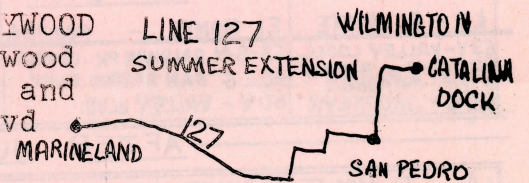 YWOOD
wood
and
vd
LINE 127
SUMMER EXTENSION
WILMINGTON
CATALINA
DOCK
127
MARINELAND
SAN PEDRO